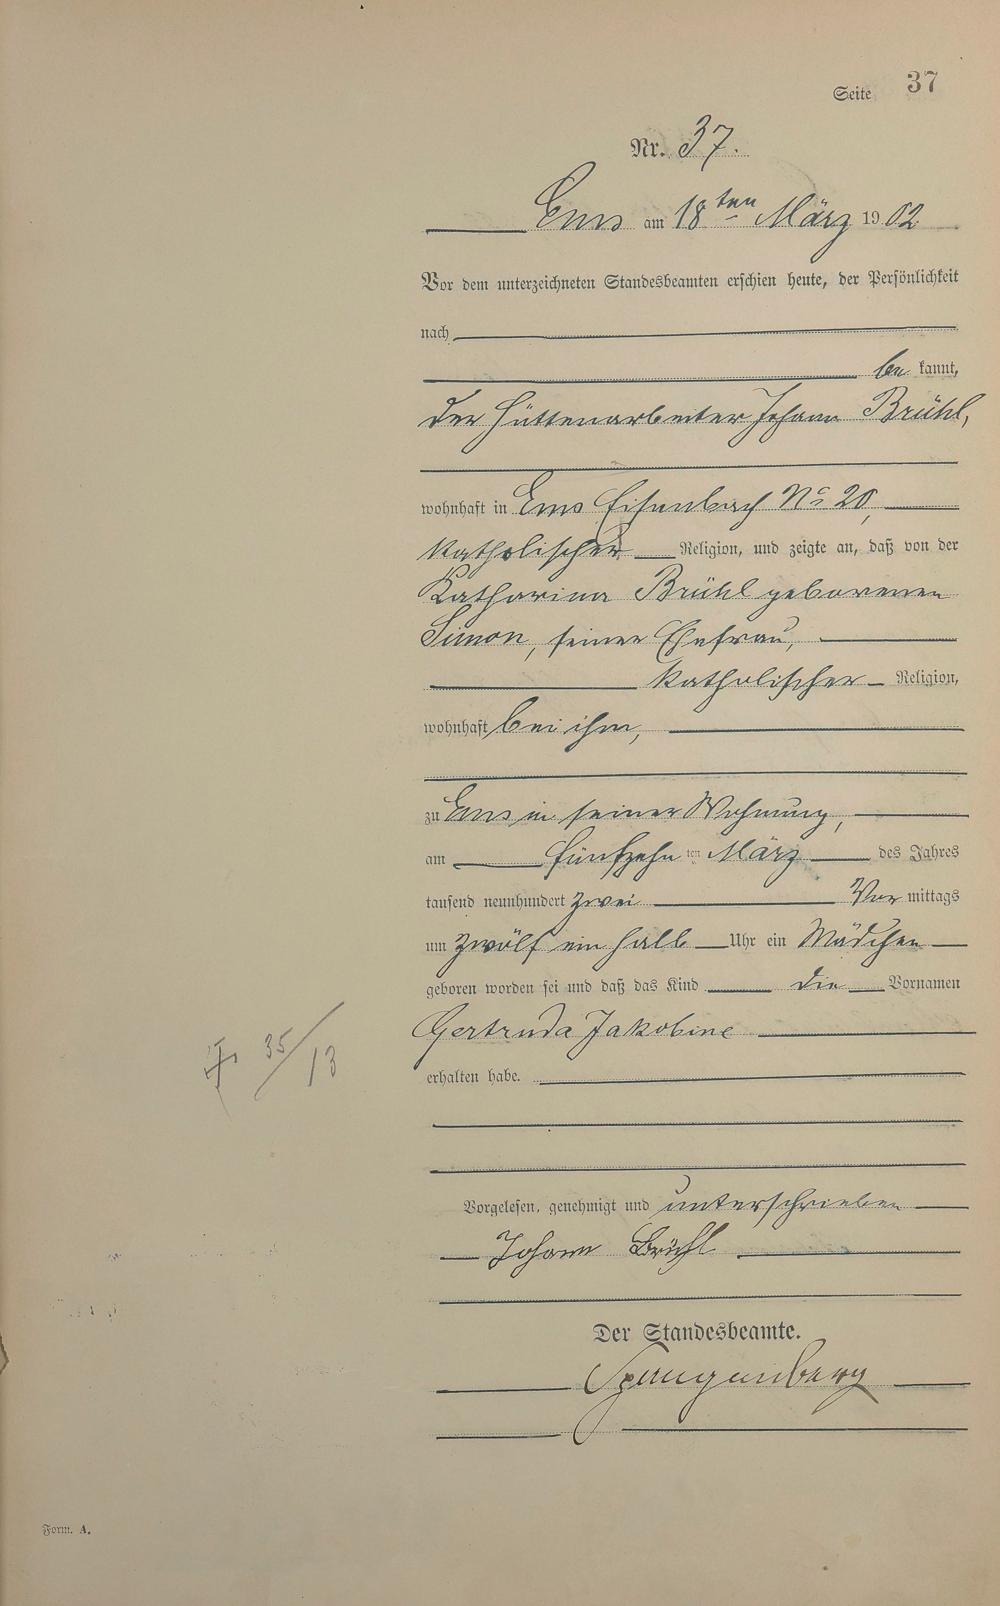 Seite 37
Nr. 37.
Ems am 18ten März 1902
Vor dem unterzeichneten Standesbeamten erschien heute, der Persönlichkeit
nach
be kannt,
der Hüttenarbeiter Johann Brühl,
wohnhaft in Ems Eisenbach No 20,
katholischer Religion, und zeigte an, daß von der
Katharina Brühl geborenen
Simon, seiner Ehefrau,
katholischer Religion,
wohnhaft bei ihm,
zu Ems in seiner Wohnung,
am fünfzehn ten März des Jahres
tausend neunhundert zwei Vor mittags
um zwölf ein halb Uhr ein Mädchen
geboren worden sei und daß das Kind die Vornamen
Gertruda Jakobine
✝ 35/13
erhalten habe.
Vorgelesen, genehmigt und unterschrieben
Johann Brühl
Der Standesbeamte.
Spangenberg
Form. A.